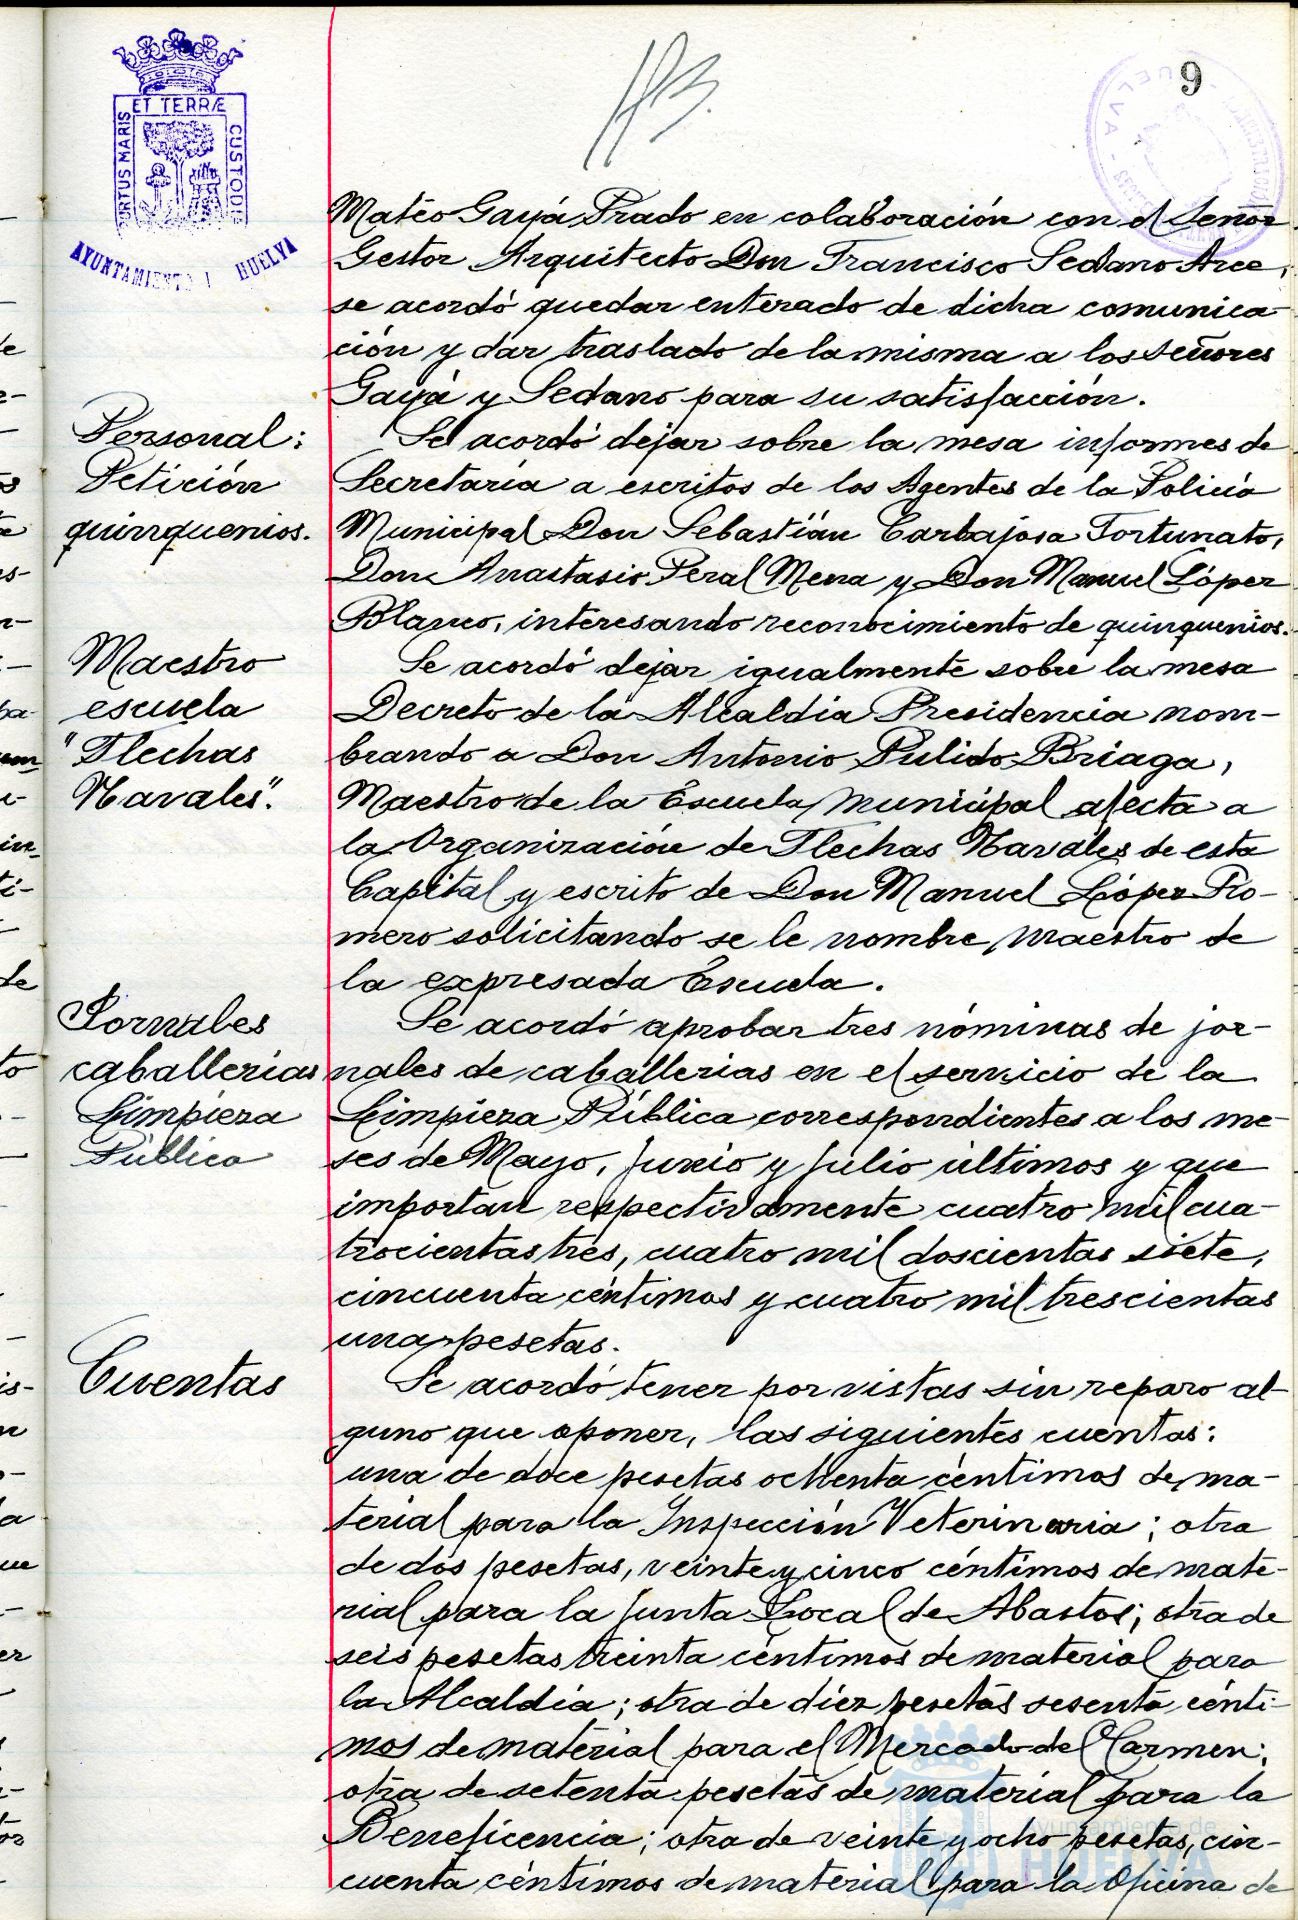 9
PORTUS MARIS ET TERRÆ CUSTODIA
AYUNTAMIENTO HUELVA
Mateo Gayá Prado en colaboración con el Señor
Gestor Arquitecto Don Francisco Sedano Arce,
se acordó quedar enterado de dicha comunica-
ción y dar traslado de la misma a los señores
Gayá y Sedano para su satisfacción.
Personal:
Petición
quinquenios.
Se acordó dejar sobre la mesa informes de
Secretaría a escritos de los Agentes de la Policía
Municipal Don Sebastián Carbajosa Fortunato,
Don Anastasio Peral Mena y Don Manuel López
Blanco, interesando reconocimiento de quinquenios.
Maestro
escuela
"Flechas
Navales".
Se acordó dejar igualmente sobre la mesa
Decreto de la Alcaldía Presidencia nom-
brando a Don Antonio Pulido Briaga,
Maestro de la Escuela Municipal afecta a
la Organización de Flechas Navales de esta
Capital y escrito de Don Manuel López Ro-
mero solicitando se le nombre Maestro de
la expresada Escuela.
Jornales
caballerías
Limpieza
Pública
Se acordó aprobar tres nóminas de jor-
nales de caballerías en el servicio de la
Limpieza Pública correspondientes a los me-
ses de Mayo, Junio y Julio últimos y que
importan respectivamente cuatro mil cua-
trocientas tres, cuatro mil doscientas siete,
cincuenta céntimos y cuatro mil trescientas
una pesetas.
Cuentas
Se acordó tener por vistas sin reparo al-
guno que oponer, las siguientes cuentas:
una de doce pesetas ochenta céntimos de ma-
terial para la Inspección Veterinaria; otra
de dos pesetas, veinte y cinco céntimos de mate-
rial para la Junta Local de Abastos; otra de
seis pesetas treinta céntimos de material para
la Alcaldía; otra de diez pesetas sesenta cénti-
mos de material para el Mercado del Carmen;
otra de setenta pesetas de material para la
Beneficencia; otra de veinte y ocho pesetas, cin-
cuenta céntimos de material para la Oficina de
Ayuntamiento de
HUELVA